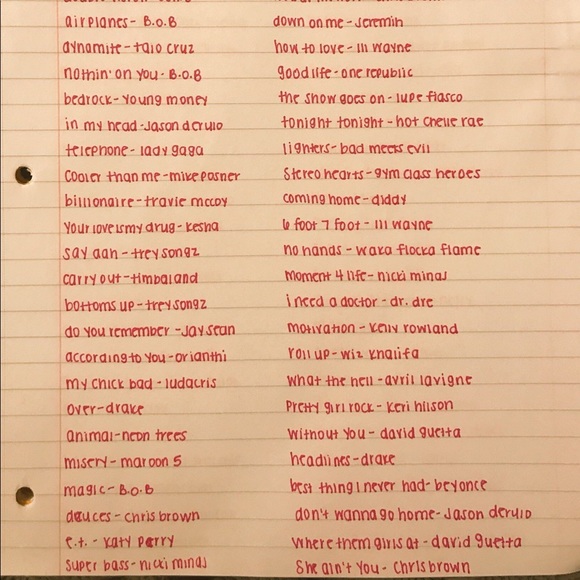 airplanes - B.O.B
dynamite - taio cruz
nothin' on you - B.O.B
bedrock - young money
in my head - Jason derulo
telephone - lady gaga
Cooler than me - mike posner
billionaire - travie mccoy
Your love is my drug - kesha
say aah - trey songz
carry out - timbaland
bottoms up - trey songz
do you remember - Jay sean
according to you - orianthi
my chick bad - ludacris
over - drake
animal - neon trees
misery - maroon 5
magic - B.O.B
deuces - chris brown
e.t. - Katy Perry
super bass - nicki minaj
down on me - Jeremih
how to love - lil wayne
good life - one republic
the show goes on - lupe fiasco
tonight tonight - hot chelle rae
lighters - bad meets evil
Stereo hearts - gym class heroes
coming home - diddy
6 foot 7 foot - lil wayne
no hands - waka flocka flame
moment 4 life - nicki minaj
i need a doctor - dr. dre
motivation - Kelly rowland
roll up - wiz khalifa
what the hell - avril lavigne
Pretty girl rock - Keri hilson
without you - david guetta
headlines - drake
best thing I never had - beyonce
don't wanna go home - Jason derulo
where them girls at - david guetta
She ain't You - Chris brown